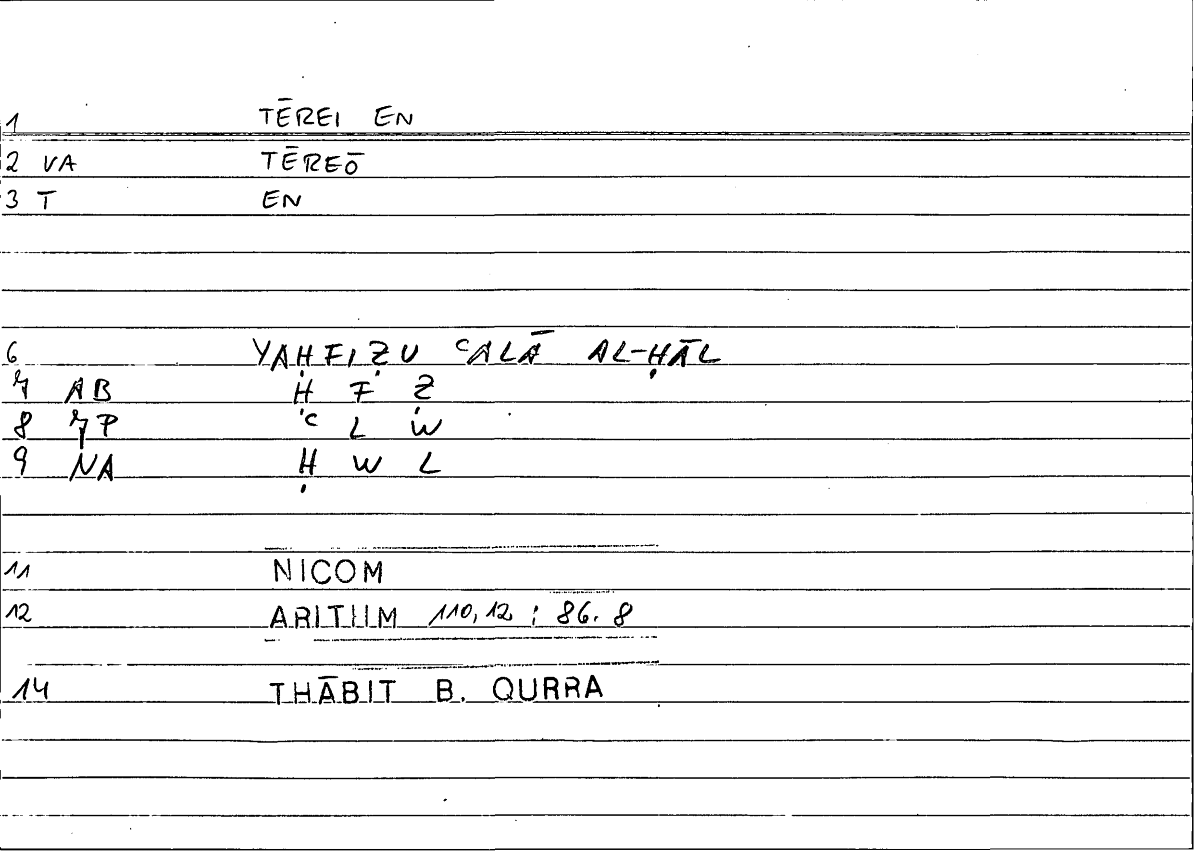 1 TĒREI EN
2 VA TĒREŌ
3 T EN
6 YAḤFIẒU ʿALĀ AL-ḤĀL
7 AB Ḥ F Ẓ
8 7P ʿ L W
9 NA Ḥ W L
11 NICOM
12 ARITHM 110,12 ; 86.8
14 THĀBIT B. QURRA